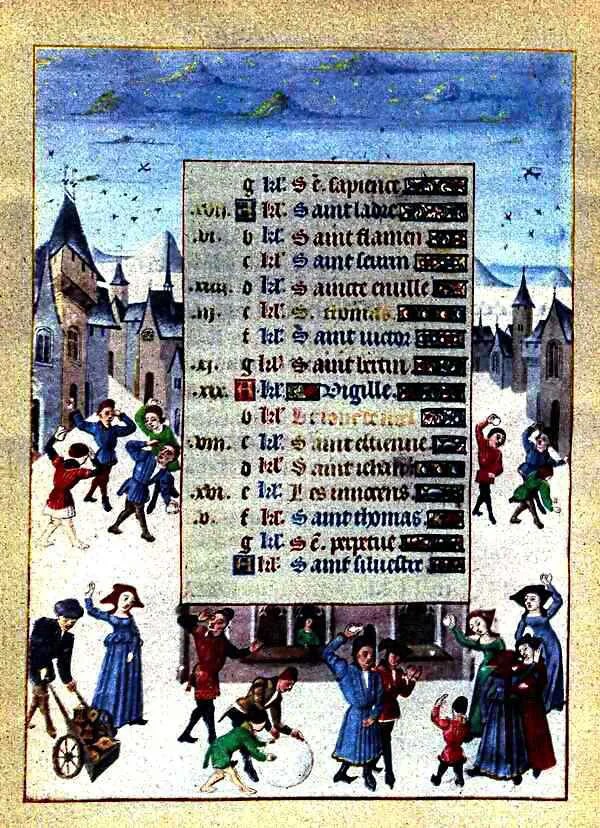 g kl' S c. sapience
.xvii. A kl' Saint ladre
.vi. b kl' Saint flamen
c kl' Saint seurin
.xiiii. d kl' Saincte
.iii. e kl' S. thomas.
f kl' Saint victor
.xi. g kl' Saint
.xix. A kl' Vigille.
b kl'
.viii. c kl' Saint estienne
d kl' Saint iehan
.xvi. e kl' Les innocens.
.v. f kl' Saint thomas.
g kl' S c. perpetue
A kl' Saint siluestre